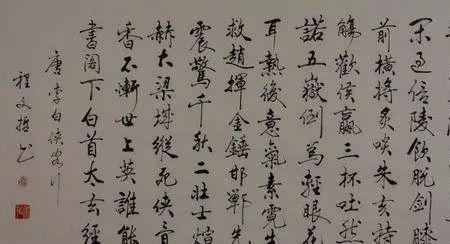 閑過信陵飲脫劍膝
前橫將炙啖朱亥持
觴勸侯嬴三杯吐然
諾五嶽倒為輕眼花
耳熱後意氣素霓生
救趙揮金錘邯鄲先
震驚千秋二壯士烜
赫大梁城縱死俠骨
香不慚世上英誰能
書閣下白首太玄經
唐李白俠客行
程文书